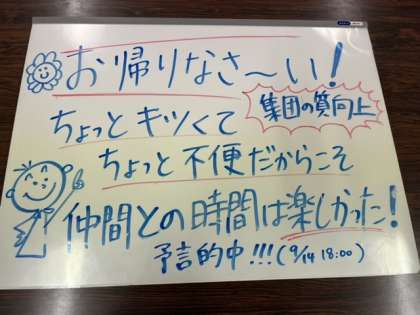 お帰りなさ〜い!
集団の質向上
ちょっとキツくて
ちょっと不便だからこそ
仲間との時間は楽しかった!
予言的中!!!(9/14 18:00)